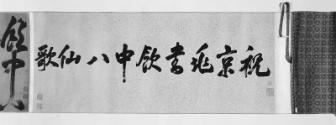 祝京兆書飲中八仙歌
飲中八